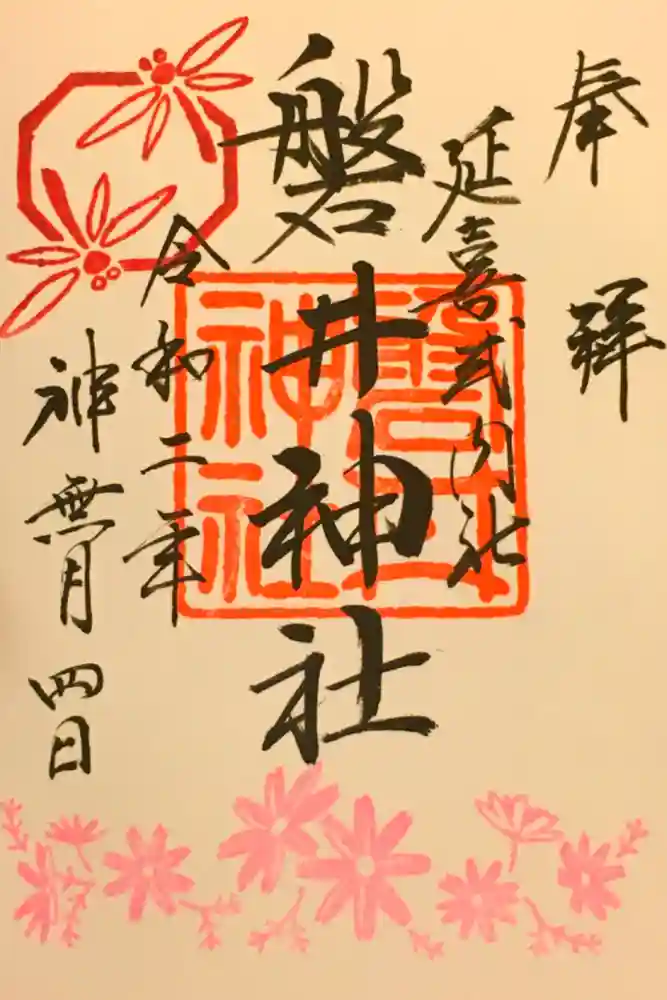 奉拝
延喜式内社
磐井神社
磐井神社
令和二年
神無月四日